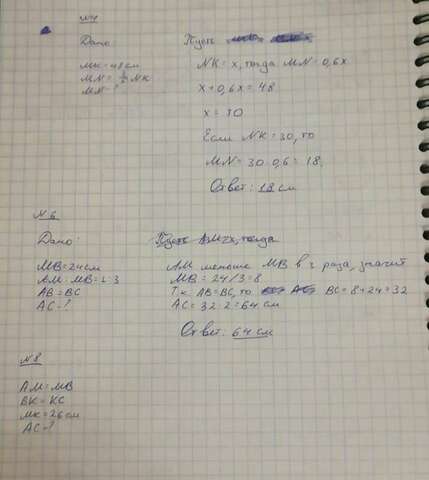 №4
Дано:
MK=48 см
MN= NK
MN-?
Пусть
NK=x, тогда MN=0,6x
x+0,6x=48
x=30
Если NK=30, то
MN=30·0,6=18
Ответ: 18 см
№6
Дано:
MB=24см
AM:MB=1:3
AB=BC
AC-?
Пусть AM=x, тогда
AM меньше MB в 3 раза, значит
MB=24/3=8
Тк AB=BC, то BC=8+24=32
AC=32·2=64 см
Ответ: 64 см
№8
AM=MB
BK=KC
MK=26см
AC-?